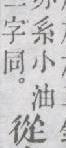 系小油
二字同。從